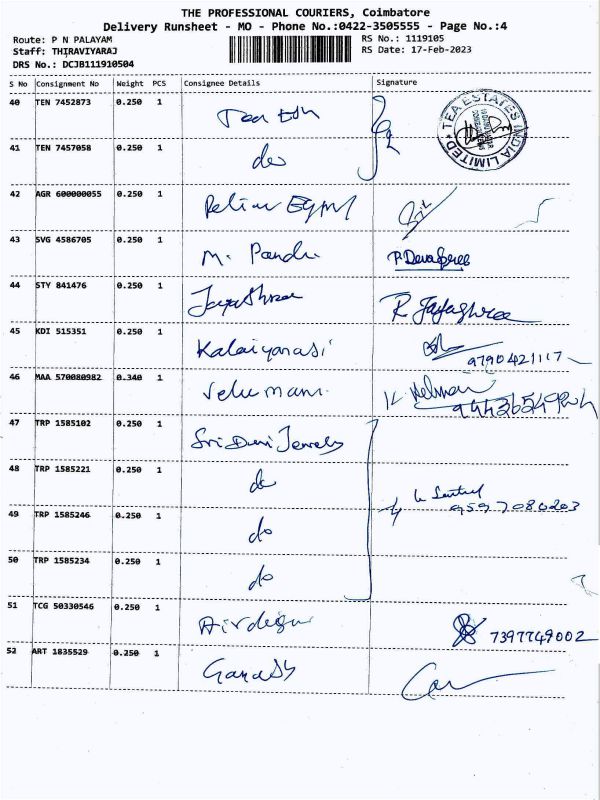 THE PROFESSIONAL COURIERS, Coimbatore
Delivery Runsheet - MO - Phone No.:0422-3505555 - Page No.:4
Route: P N PALAYAM RS No.: 1119105
Staff: THIRAVIYARAJ RS Date: 17-Feb-2023
DRS No.: DCJB111910504
S No Consignment No Weight PCS Consignee Details Signature
40 TEN 7452873 0.250 1 Tea Esh
TEA ESTATES INDIA LIMITED
41 TEN 7457058 0.250 1 do
42 AGR 600000055 0.250 1
43 SVG 4586705 0.250 1 M. Pandu P.Devashree
44 STY 841476 0.250 1 Jayashree R Jayashree
45 KDI 515351 0.250 1 Kalaiyarasi 9790421117
46 MAA 570080982 0.340 1 Velumani
47 TRP 1585102 0.250 1 Sri Devi Jewels
48 TRP 1585221 0.250 1 do
49 TRP 1585246 0.250 1 do 9597080203
50 TRP 1585234 0.250 1 do
51 TCG 50330546 0.250 1 7397749002
52 ART 1835529 0.250 1 Ganash